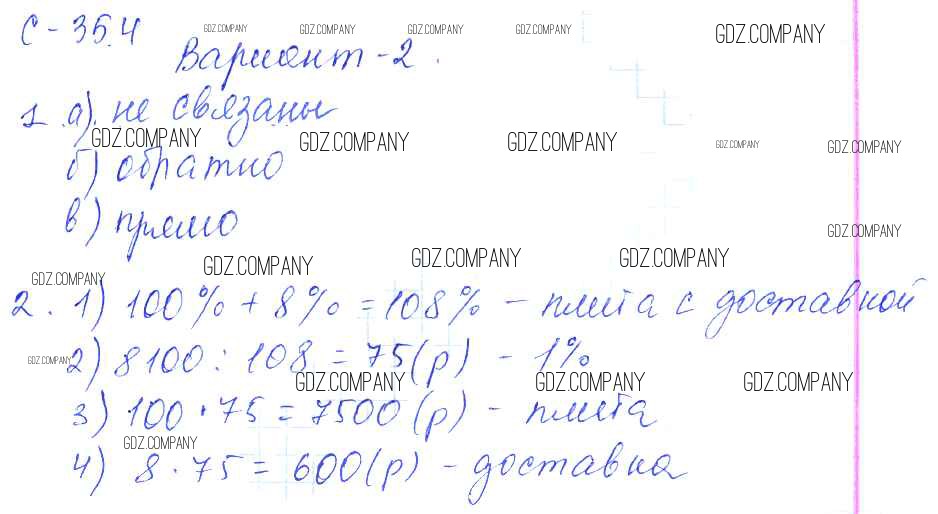 С-35.4
GDZ.COMPANY GDZ.COMPANY GDZ.COMPANY GDZ.COMPANY GDZ.COMPANY
Вариант-2.
1. а) не связаны
GDZ.COMPANY GDZ.COMPANY GDZ.COMPANY GDZ.COMPANY GDZ.COMPANY
б) обратно
в) прямо
GDZ.COMPANY
GDZ.COMPANY GDZ.COMPANY GDZ.COMPANY GDZ.COMPANY
2. 1) 100% + 8% = 108% - плита с доставкой
GDZ.COMPANY
2) 8100 : 108 = 75(р) - 1%
GDZ.COMPANY GDZ.COMPANY GDZ.COMPANY
3) 100 · 75 = 7500 (р) - плита
GDZ.COMPANY
4) 8 · 75 = 600(р) - доставка